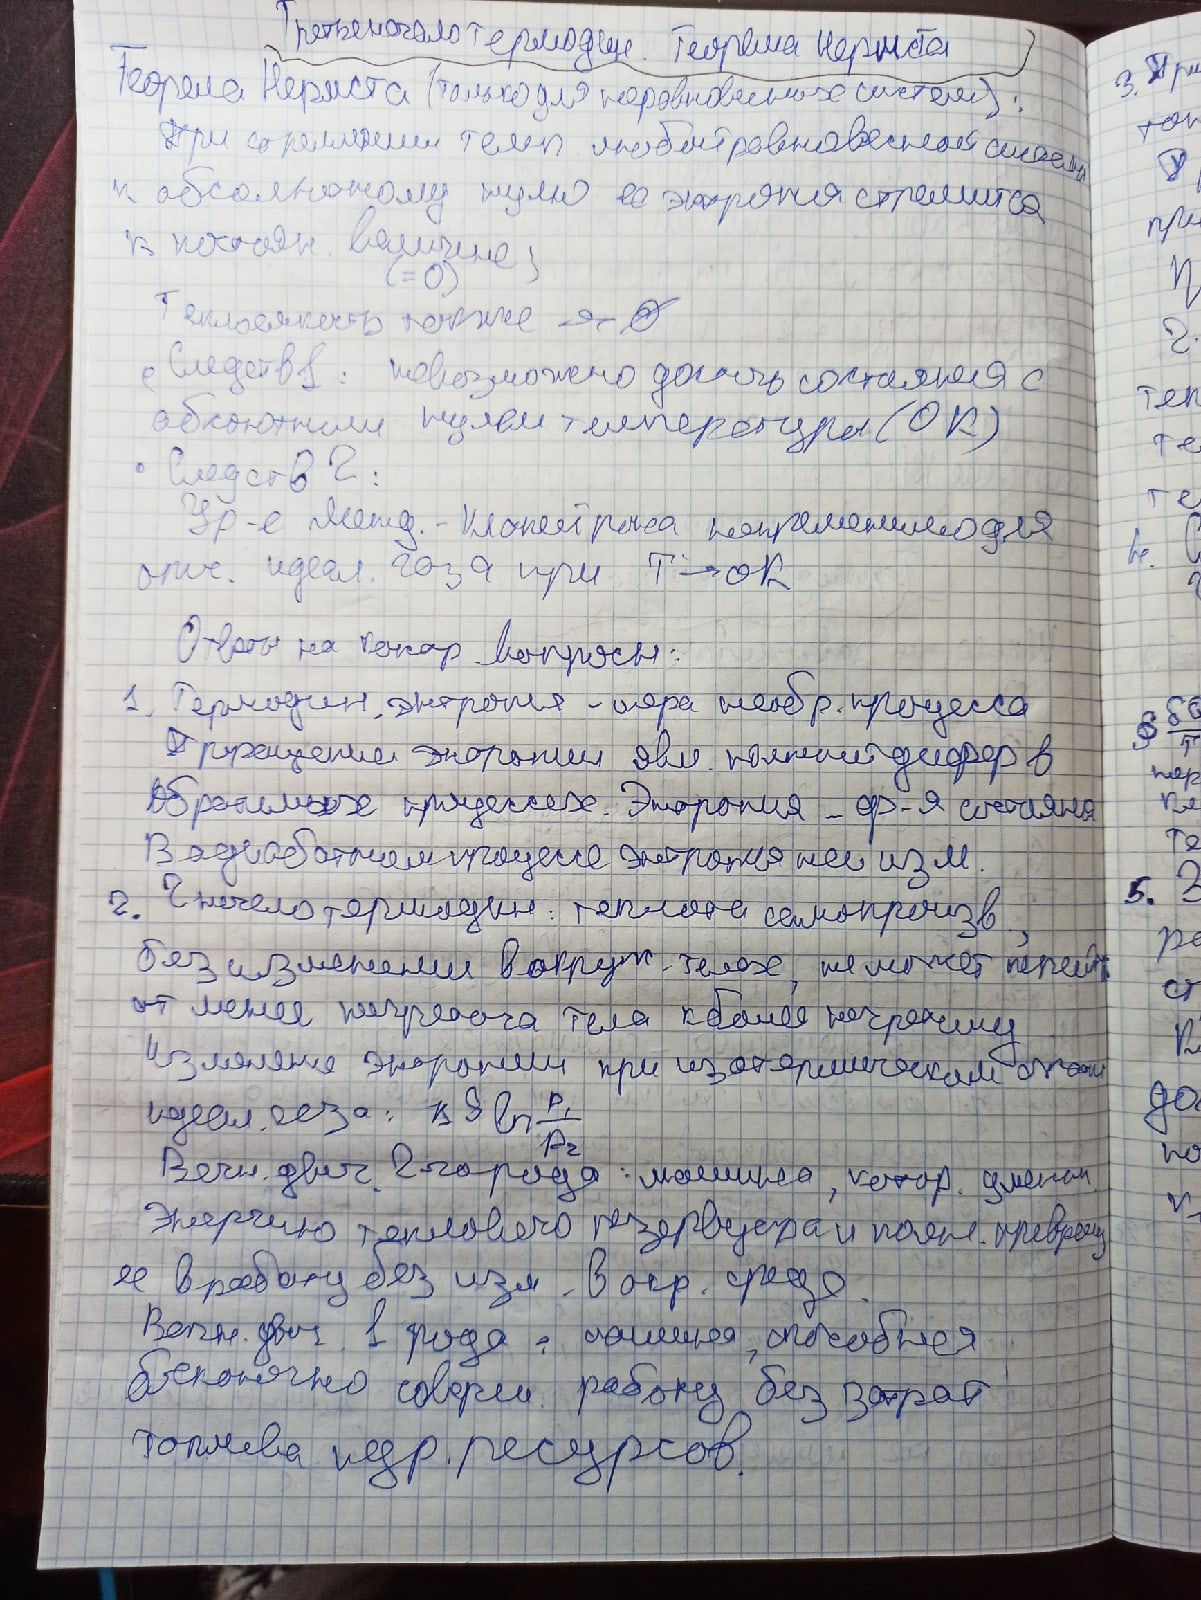 Третье начало термодин. Теорема Нернста
Теорема Нернста (только для неравновесных систем):
При стремлении темп. любой равновесной системы
к абсолютному нулю ее энтропия стремится
к постоян. величине;
(=0)
Теплоемкость также → 0
• Следств 1: невозможно достичь состояния с
абсолютным нулем температуры (0К)
• Следств 2:
Ур-е Менд.-Клапейрона неприменимо для
опис. идеал. газа при T → 0К
Ответы на контр вопросы:
1. Термодин. энтропия - мера необр. процесса
Приращение энтропии явл. полный диффер в
обратимых процессах. Энтропия - ф-я состояния
В адиабатном процессе энтропия не изм.
2. 2 начало термодин: теплота самопроизв,
без изменения в окруж. телах, не может перейти
от менее нагретого тела к более нагретому
Изменение энтропии при изотермическом сжатии
идеал. газа: ln P₁/P₂
Вечн. двиг. 2-го рода: машина, котор. уменьш.
энергию теплового резервуара и полн. превращ
ее в работу без изм. в окр. среде.
Вечн. двиг 1 рода: машина, способная
бесконечно соверш. работу без затрат
топлива и др. ресурсов.
3. При
5.